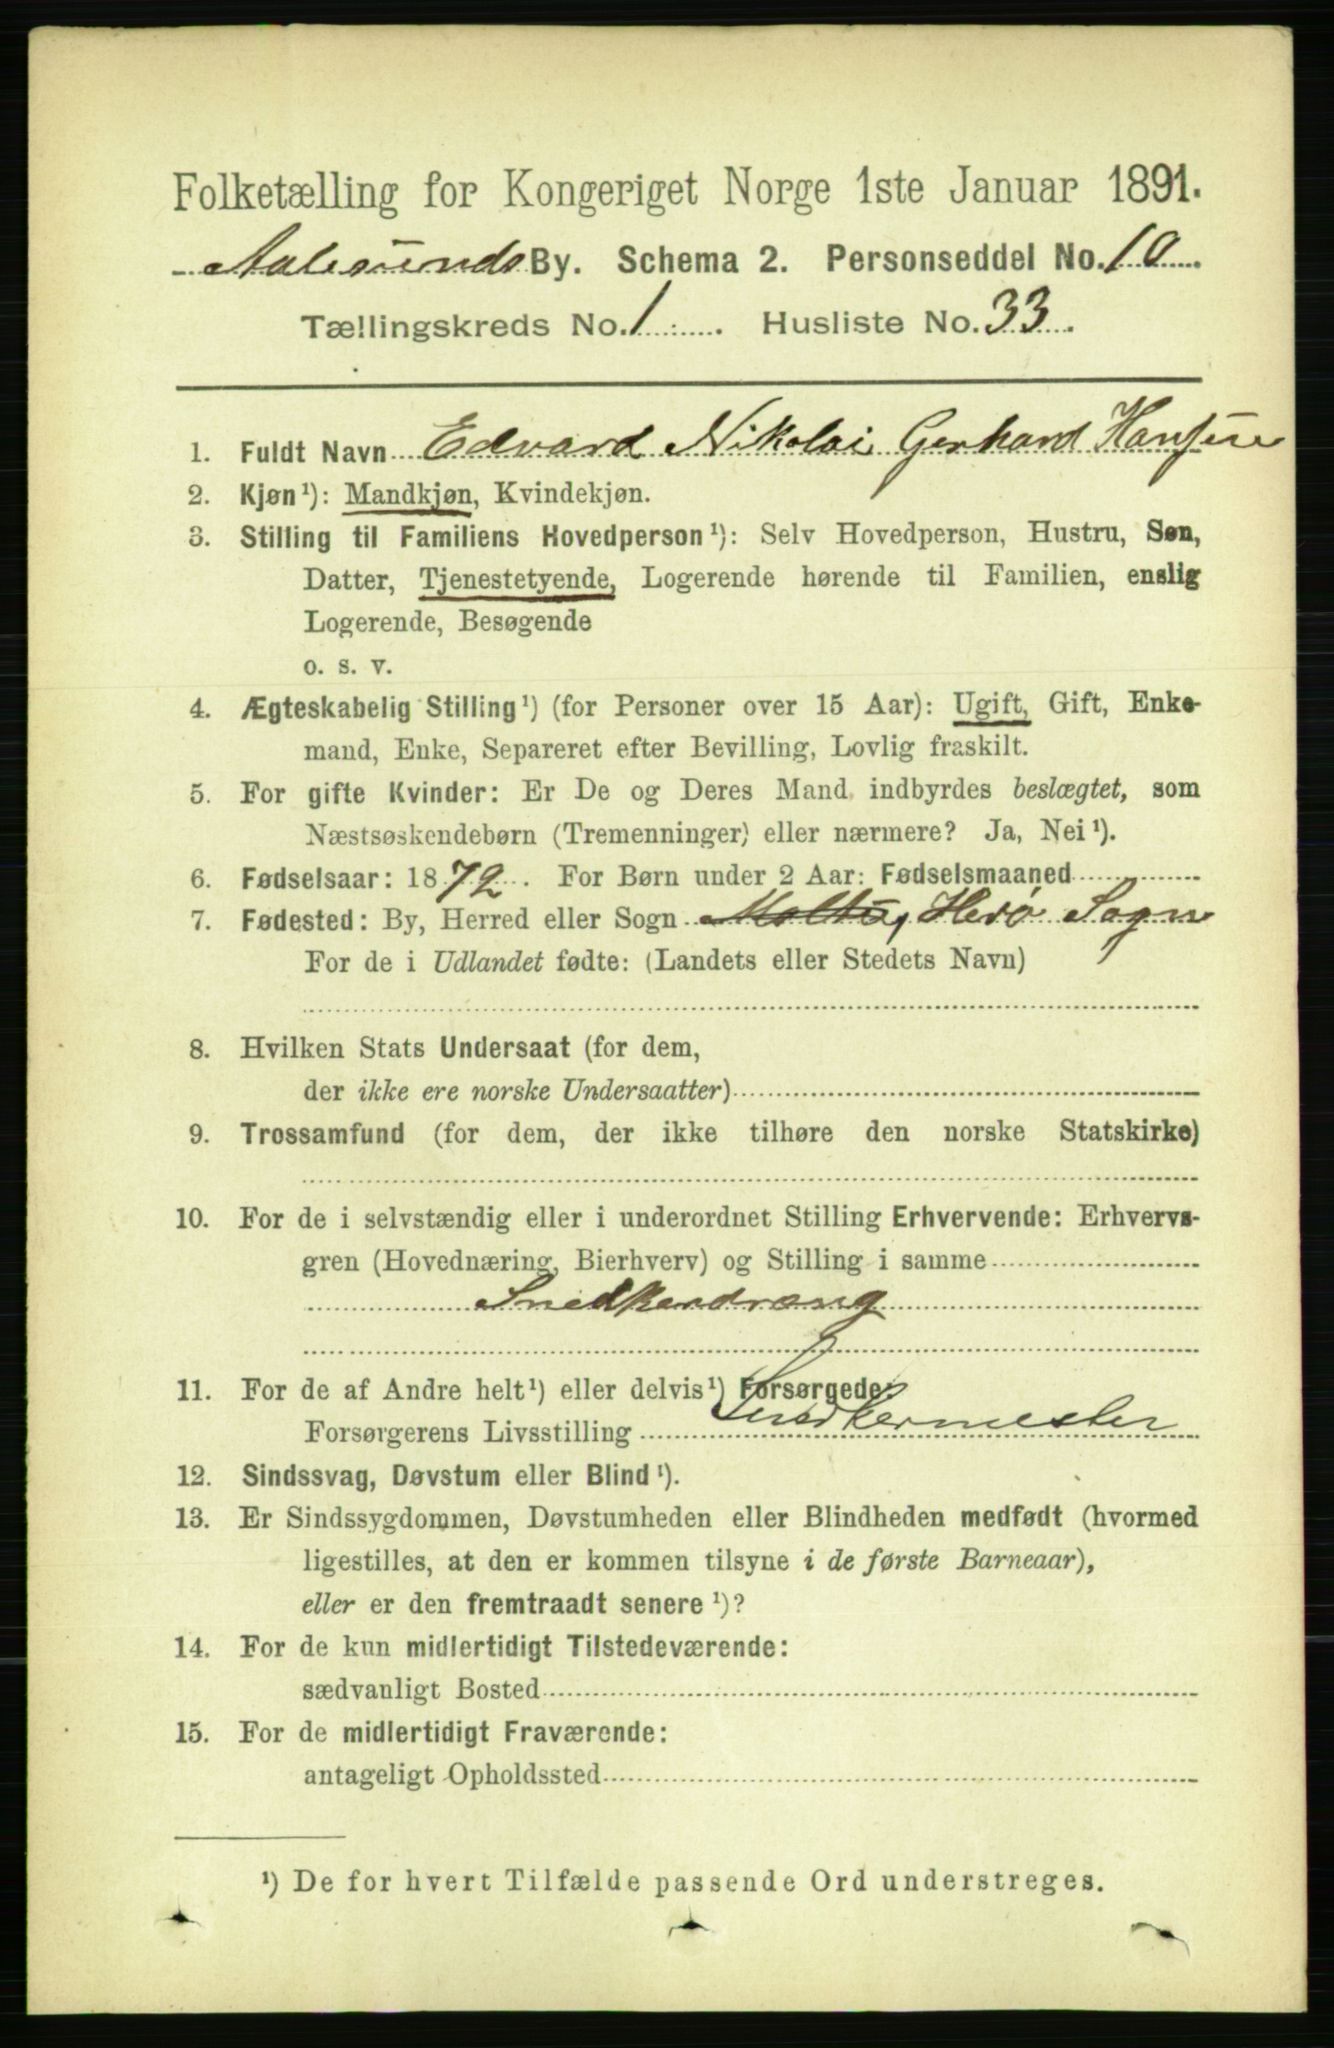 Folketælling for Kongeriget Norge 1ste Januar 1891.
Aalesunds By. Schema 2. Personseddel No. 10
Tællingskreds No. 1. Husliste No. 33.
1. Fuldt Navn Edvard Nikolai Gerhard Hansen
2. Kjøn¹): Mandkjøn, Kvindekjøn.
3. Stilling til Familiens Hovedperson¹): Selv Hovedperson, Hustru, Søn,
Datter, Tjenestetyende, Logerende hørende til Familien, enslig
Logerende, Besøgende
o. s. v.
4. Ægteskabelig Stilling¹) (for Personer over 15 Aar): Ugift, Gift, Enke-
mand, Enke, Separeret efter Bevilling, Lovlig fraskilt.
5. For gifte Kvinder: Er De og Deres Mand indbyrdes beslægtet, som
Næstsøskendebørn (Tremenninger) eller nærmere? Ja, Nei¹).
6. Fødselsaar: 1872. For Børn under 2 Aar: Fødselsmaaned
7. Fødested: By, Herred eller Sogn Moltu, Herø Sogn
For de i Udlandet fødte: (Landets eller Stedets Navn)
8. Hvilken Stats Undersaat (for dem,
der ikke ere norske Undersaatter)
9. Trossamfund (for dem, der ikke tilhøre den norske Statskirke)
10. For de i selvstændig eller i underordnet Stilling Erhvervende: Erhvervs-
gren (Hovednæring, Bierhverv) og Stilling i samme
Snedkerdræng
11. For de af Andre helt¹) eller delvis¹) Forsørgede:
Forsørgerens Livsstilling Snedkermester
12. Sindssvag, Døvstum eller Blind¹).
13. Er Sindssygdommen, Døvstumheden eller Blindheden medfødt (hvormed
ligestilles, at den er kommen tilsyne i de første Barneaar),
eller er den fremtraadt senere¹)?
14. For de kun midlertidigt Tilstedeværende:
sædvanligt Bosted
15. For de midlertidigt Fraværende:
antageligt Opholdssted
¹) De for hvert Tilfælde passende Ord understreges.